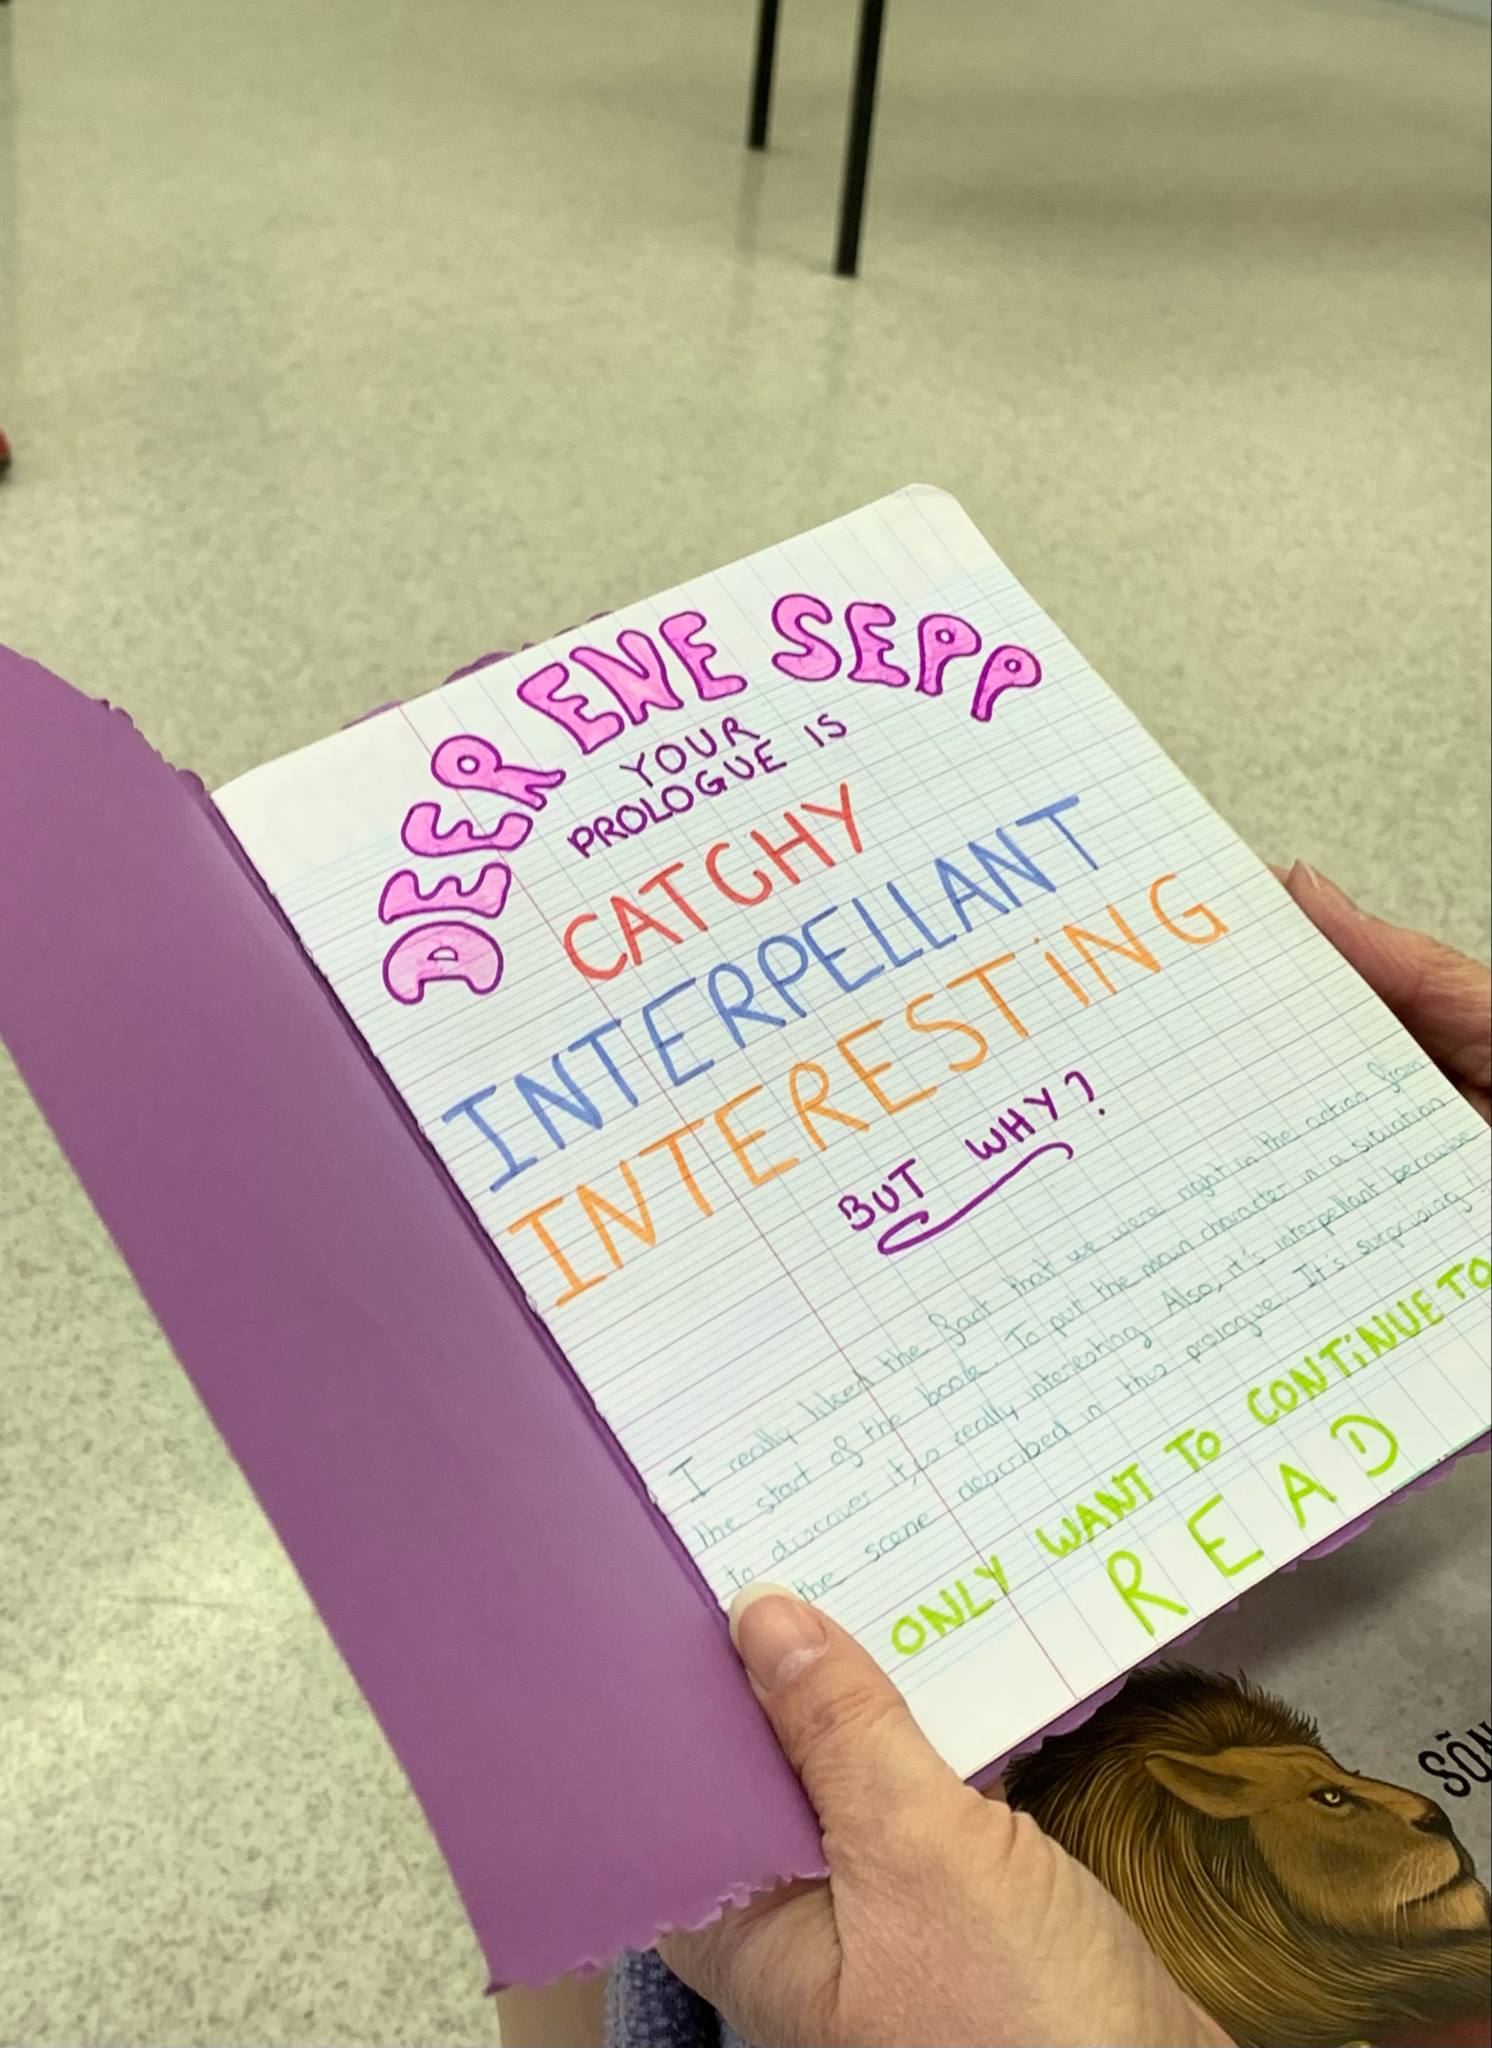 DEER ENE SEPP
YOUR
PROLOGUE IS
CATCHY
INTERPELLANT
INTERESTING
BUT WHY?
I really liked the fact that we were right in the action from
the start of the book. To put the main character in a situation
to discover it, is really interesting. Also, it's interpellant because
the scene described in this prologue. It's surprising!
ONLY WANT TO CONTINUE TO
READ
SÕN